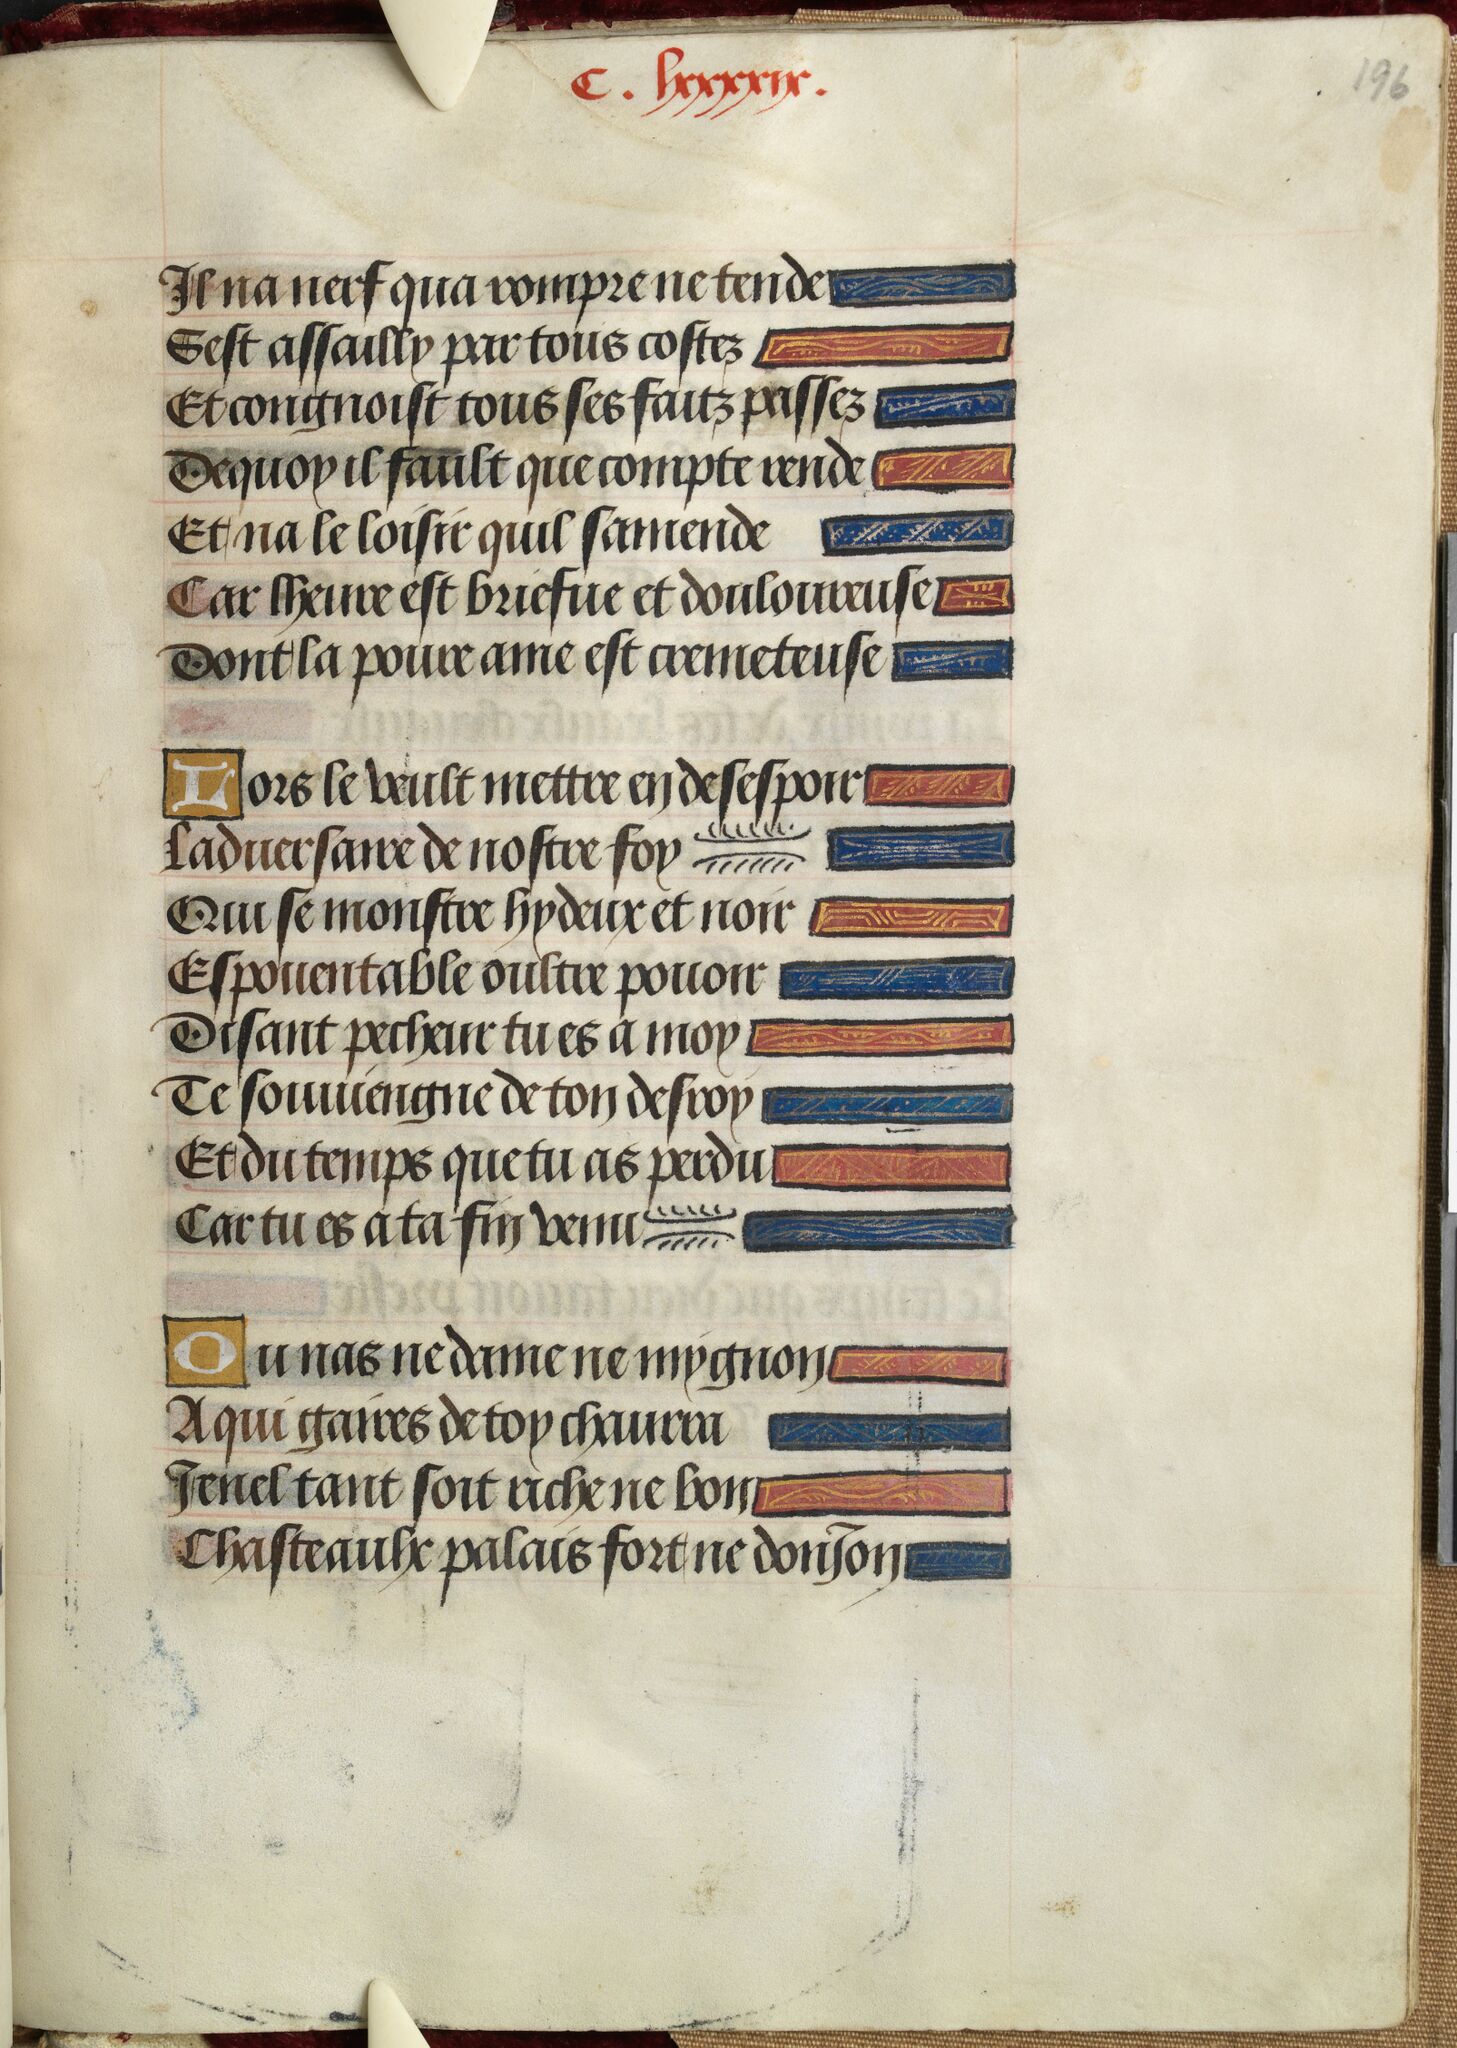 C. lxxxxix.
196
Il na nerf qua rompre ne tende
Sest assailly par tous costez
Et congnoist tous ses faitz passez
De quoy il fault que compte rende
Et na le loisir quil samende
Car lheure est briefue et douloureuse
Dont la poure ame est cremeteuse
Lors le veult mettre en desespoir
Laduersaire de nostre foy
Qui se monstre hydeux et noir
Espouentable oultre pouoir
Disant pecheur tu es a moy
Te souuiengne de ton desroy
Et du temps que tu as perdu
Car tu es a ta fin venu
Ou nas ne dame ne mygnon
A qui gaires de toy chaurra
Ienel tant soit riche ne bon
Chasteaulx palais fort ne donJon